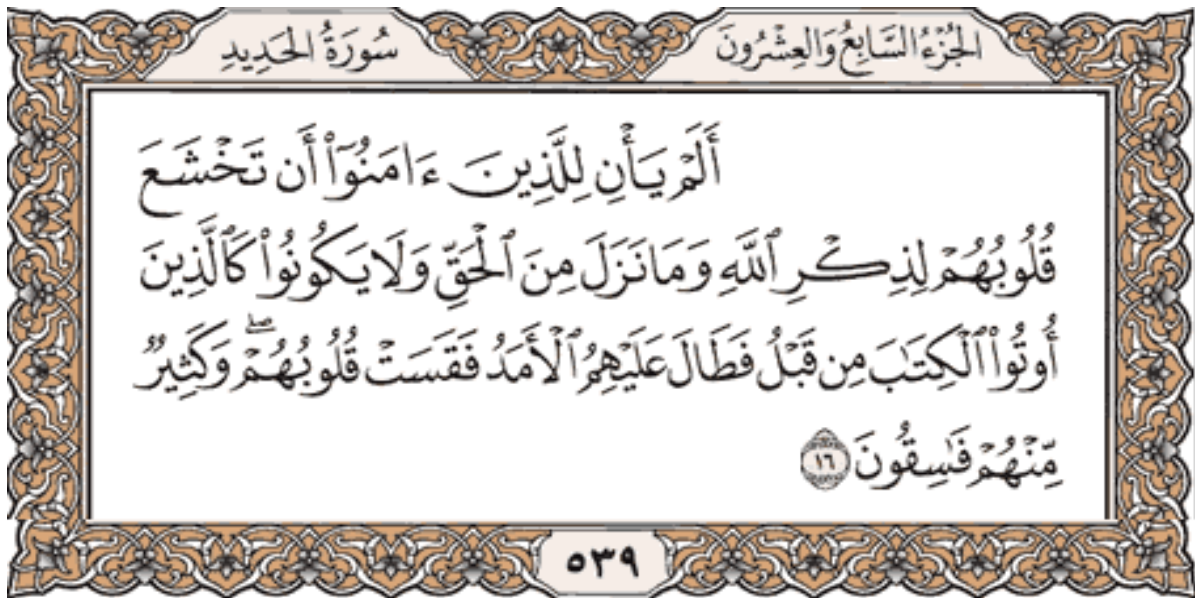 الجُزْءُ السَّابِعُ وَالعِشْرُونَ
سُورَةُ الحَدِيدِ
أَلَمْ يَأْنِ لِلَّذِينَ ءَامَنُوٓا۟ أَن تَخْشَعَ
قُلُوبُهُمْ لِذِكْرِ ٱللَّهِ وَمَا نَزَلَ مِنَ ٱلْحَقِّ وَلَا يَكُونُوا۟ كَٱلَّذِينَ
أُوتُوا۟ ٱلْكِتَٰبَ مِن قَبْلُ فَطَالَ عَلَيْهِمُ ٱلْأَمَدُ فَقَسَتْ قُلُوبُهُمْ ۖ وَكَثِيرٌ
مِّنْهُمْ فَٰسِقُونَ ١٦
٥٣٩